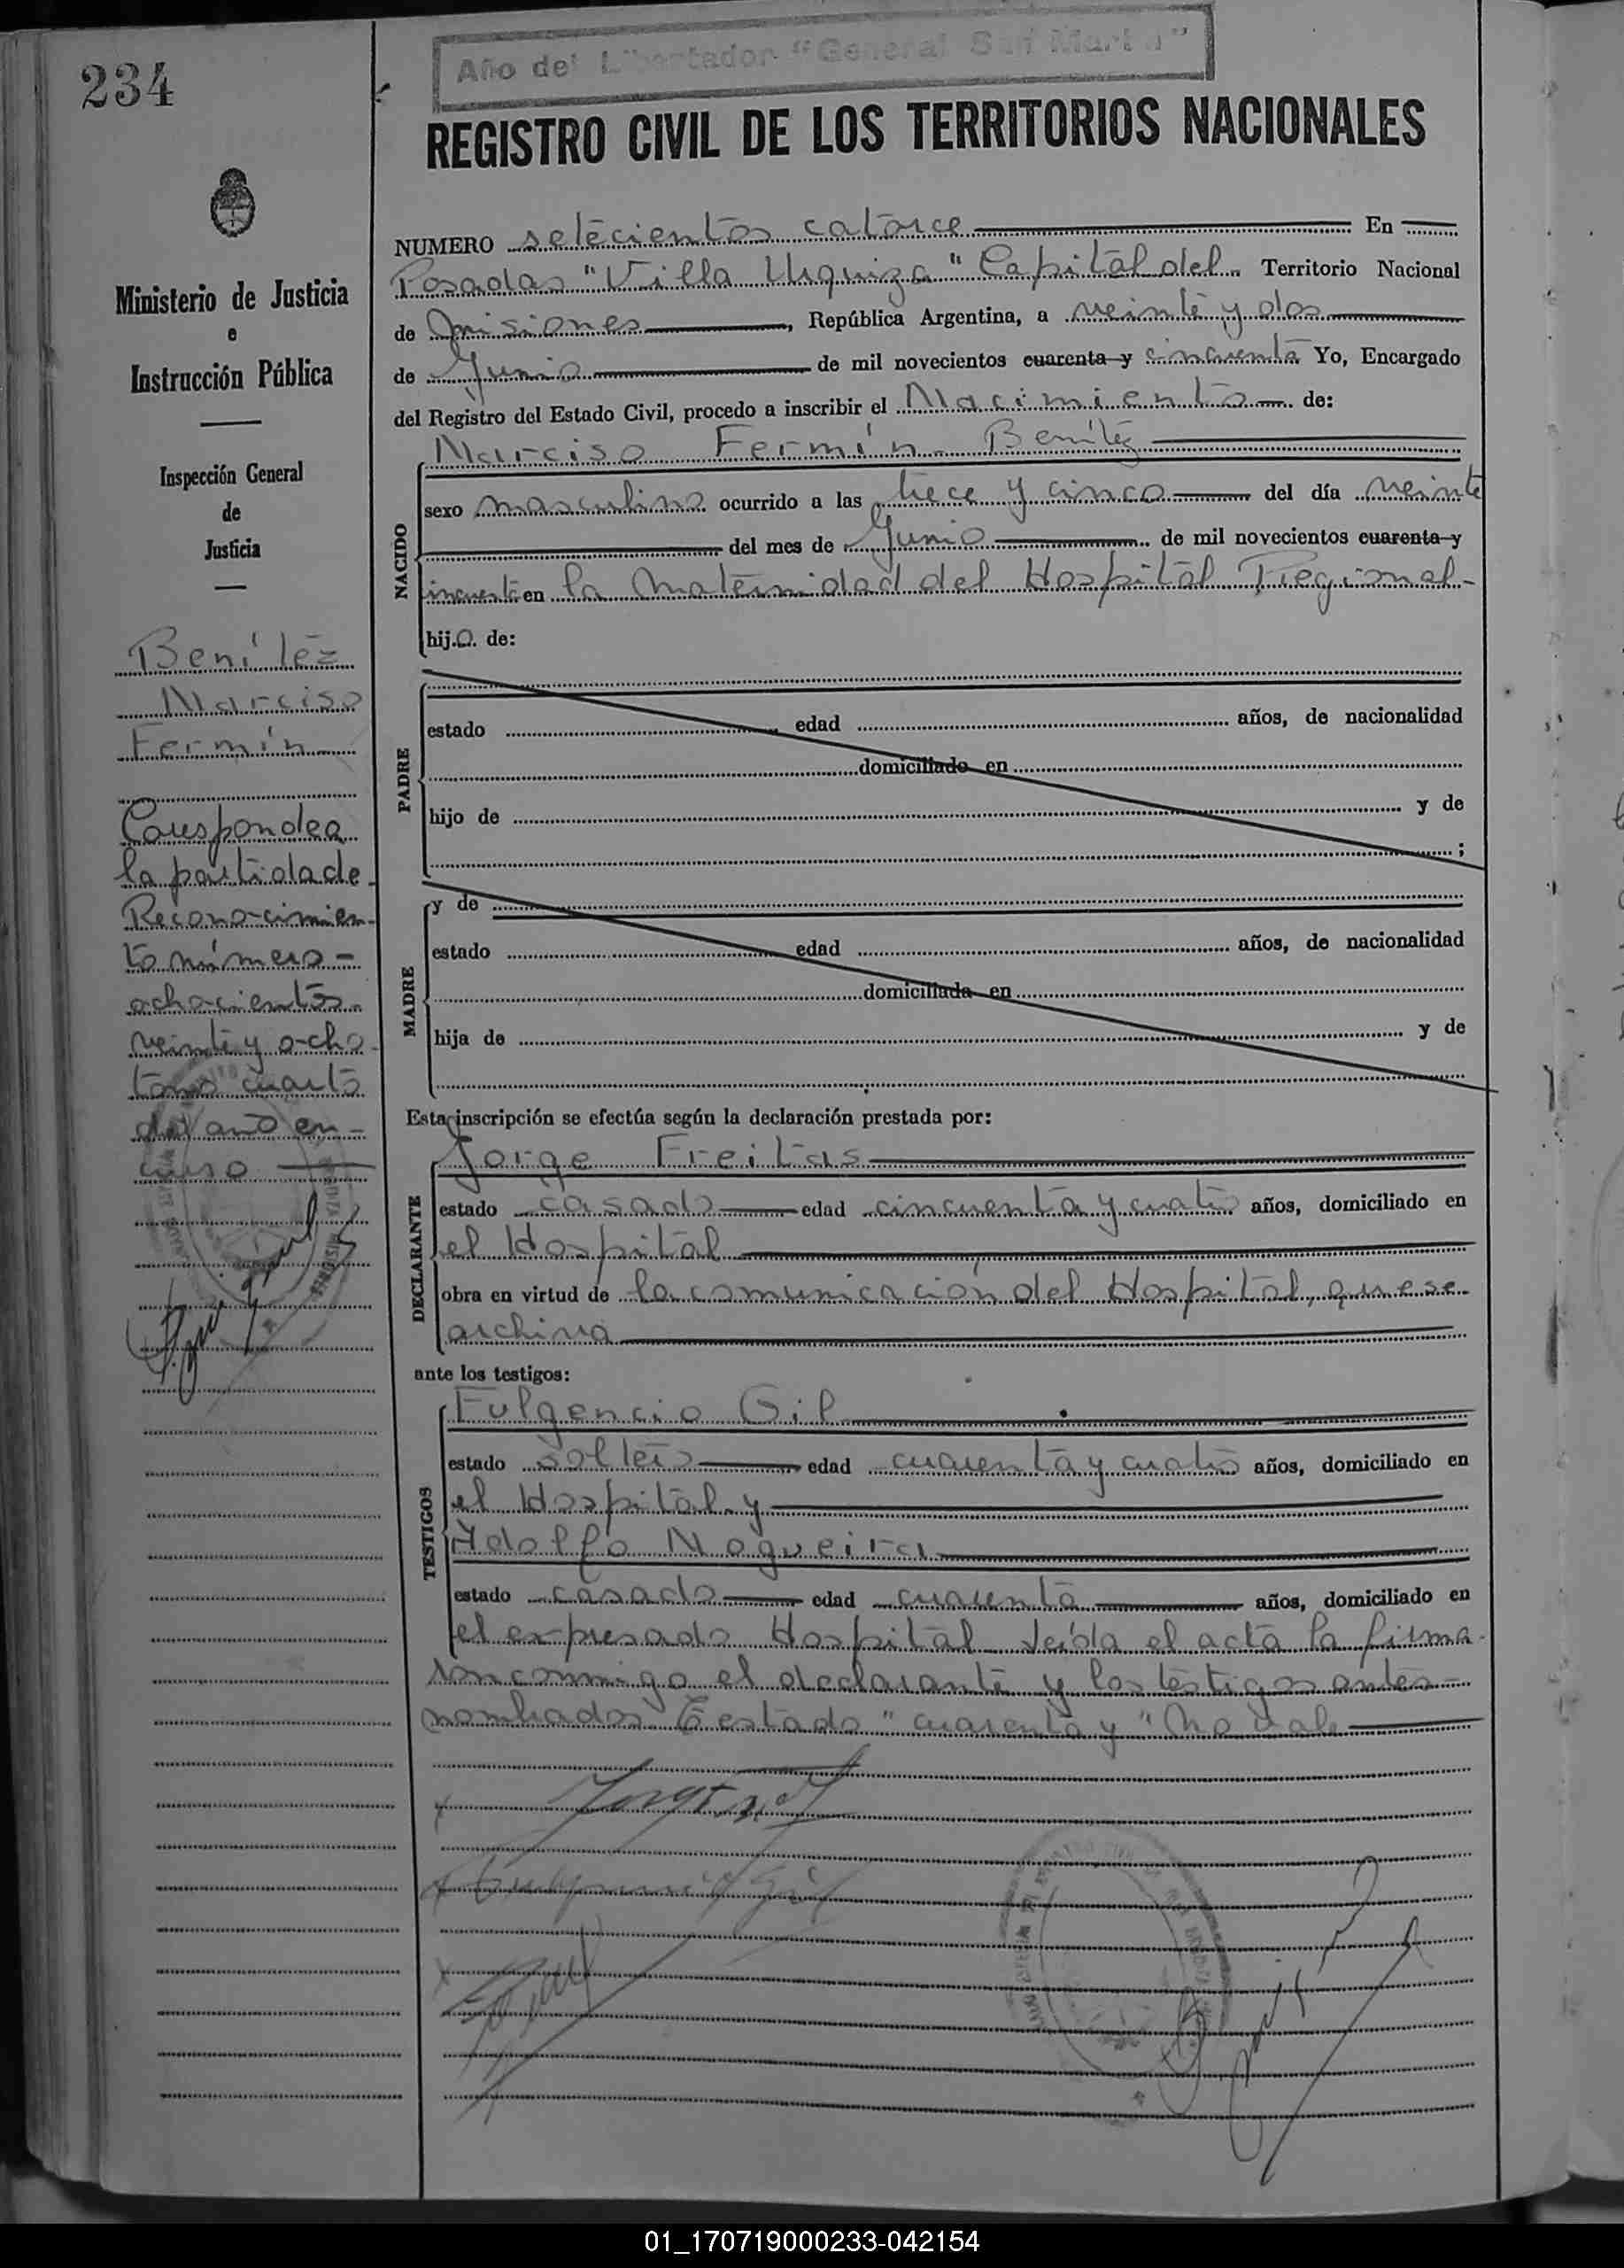 234
Año del Libertador "General San Martín"
REGISTRO CIVIL DE LOS TERRITORIOS NACIONALES
Ministerio de Justicia
e
Instrucción Pública
Inspección General
de
Justicia
Benítez
Narciso
Fermín
Corresponde a
la partida de
Reconocimien-
to número -
ochocientos
veinte y ocho
tomo cuarto
del año en -
curso
NUMERO setecientos catorce En
Posadas "Villa Urquiza" Capital del Territorio Nacional
de Misiones, República Argentina, a veinte y dos
de Junio de mil novecientos cuarenta y cincuenta Yo, Encargado
del Registro del Estado Civil, procedo a inscribir el Nacimiento de:
Narciso Fermín Benítez
NACIDO
sexo masculino ocurrido a las trece y cinco del día veinte
del mes de Junio de mil novecientos cuarenta y
cincuenta en la Maternidad del Hospital Regional -
hijo de:
PADRE
estado edad años, de nacionalidad
domiciliado en
hijo de y de
;
MADRE
y de
estado edad años, de nacionalidad
domiciliada en
hija de y de
Esta inscripción se efectúa según la declaración prestada por:
DECLARANTE
Jorge Freitas
estado casado edad cincuenta y cuatro años, domiciliado en
el Hospital
obra en virtud de la comunicación del Hospital, que se
archiva
ante los testigos:
TESTIGOS
Fulgencio Gil
estado soltero edad cuarenta y cuatro años, domiciliado en
el Hospital y
Adolfo Nogueira
estado casado edad cuarenta años, domiciliado en
el expresado Hospital Leída el acta la firma-
ron conmigo el declarante y los testigos antes -
nombrados Testado "cuarenta y" No vale
01_170719000233-042154